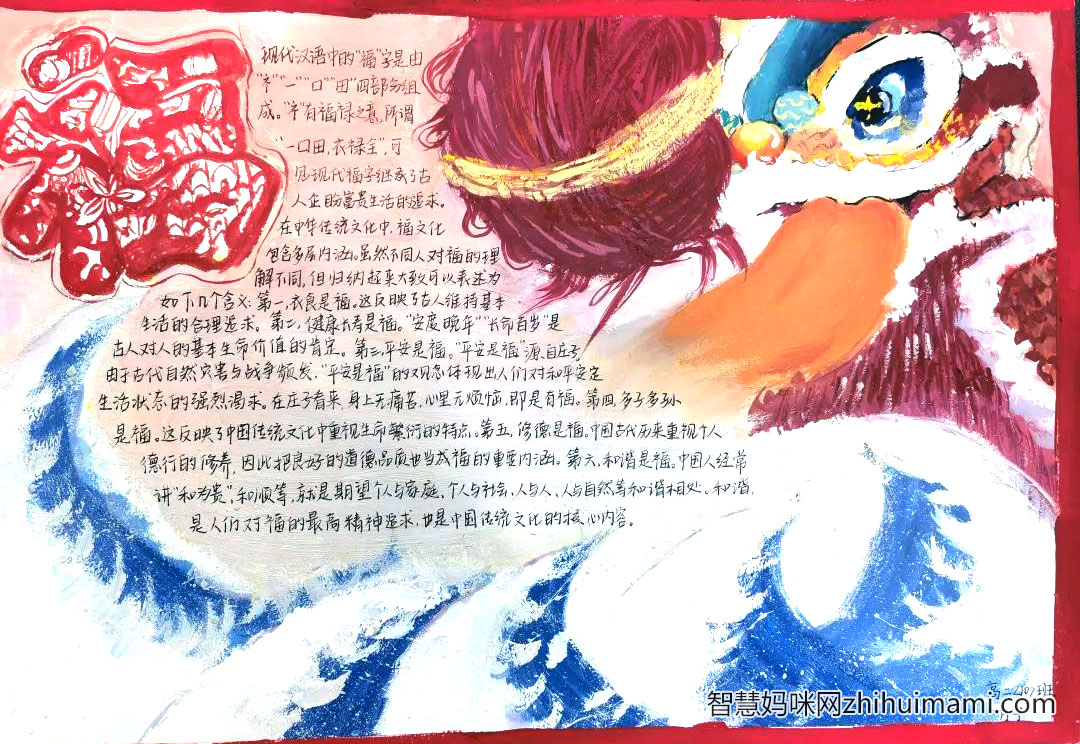 福
现代汉语中的"福"字是由
"礻""一""口""田"四部分组
成。"礻"有福禄之意,所谓
"一口田,衣禄全",可
见现代福字继承了古
人企盼富贵生活的追求。
在中华传统文化中,福文化
包含多层内涵。虽然不同人对福的理
解不同,但归纳起来大致可以表述为
如下几个含义:第一,衣食是福。这反映了古人维持基本
生活的合理追求。第二,健康长寿是福。"安度晚年""长命百岁"是
古人对人的基本生命价值的肯定。第三,平安是福。"平安是福"源自庄子,
由于古代自然灾害与战争频发,"平安是福"的观念体现出人们对和平安定
生活状态的强烈渴求。在庄子看来,身上无痛苦,心里无烦恼,即是有福。第四,多子多孙
是福。这反映了中国传统文化中重视生命繁衍的特点。第五,修德是福。中国古代历来重视个人
德行的修养,因此把良好的道德品质也当成福的重要内涵。第六,和谐是福。中国人经常
讲"和为贵",和顺等,就是期望个人与家庭,个人与社会,人与人,人与自然等和谐相处。和谐,
是人们对福的最高精神追求,也是中国传统文化的核心内容。
高二(10)班
智慧妈咪网zhihuimami.com